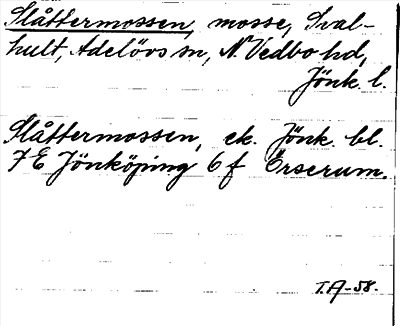 Slåttermossen, mosse, Sval-
hult, Adelövs sn, N. Vedbo hd,
Jönk. l.
Slåttermossen, ek. Jönk. bl.
7 E Jönköping 6 f Örserum.
T.A-58.